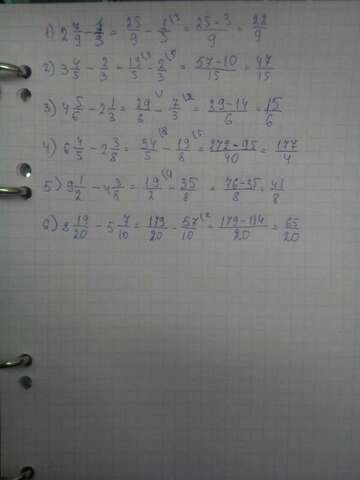 1) 2 7/9 - 1/3 = 25/9 - 1/3 \3 = 25-3/9 = 22/9
2) 3 4/5 - 2/3 = 19/5 \3 - 2/3 \5 = 57-10/15 = 47/15
3) 4 5/6 - 2 1/3 = 29/6 - 7/3 \2 = 29-14/6 = 15/6
4) 6 4/5 - 2 3/8 = 34/5 \8 - 19/8 \5 = 272-95/40 = 177/4
5) 9 1/2 - 4 3/8 = 19/2 \4 - 35/8 = 76-35/8 = 41/8
6) 8 19/20 - 5 7/10 = 179/20 - 57/10 \2 = 179-114/20 = 65/20